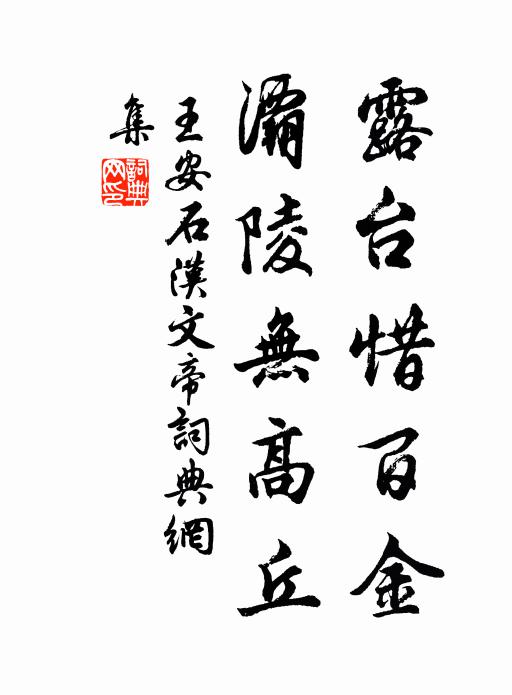 露台惜百金
灞陵無高丘
王安石漢文帝詞典網
集
詞典
网印